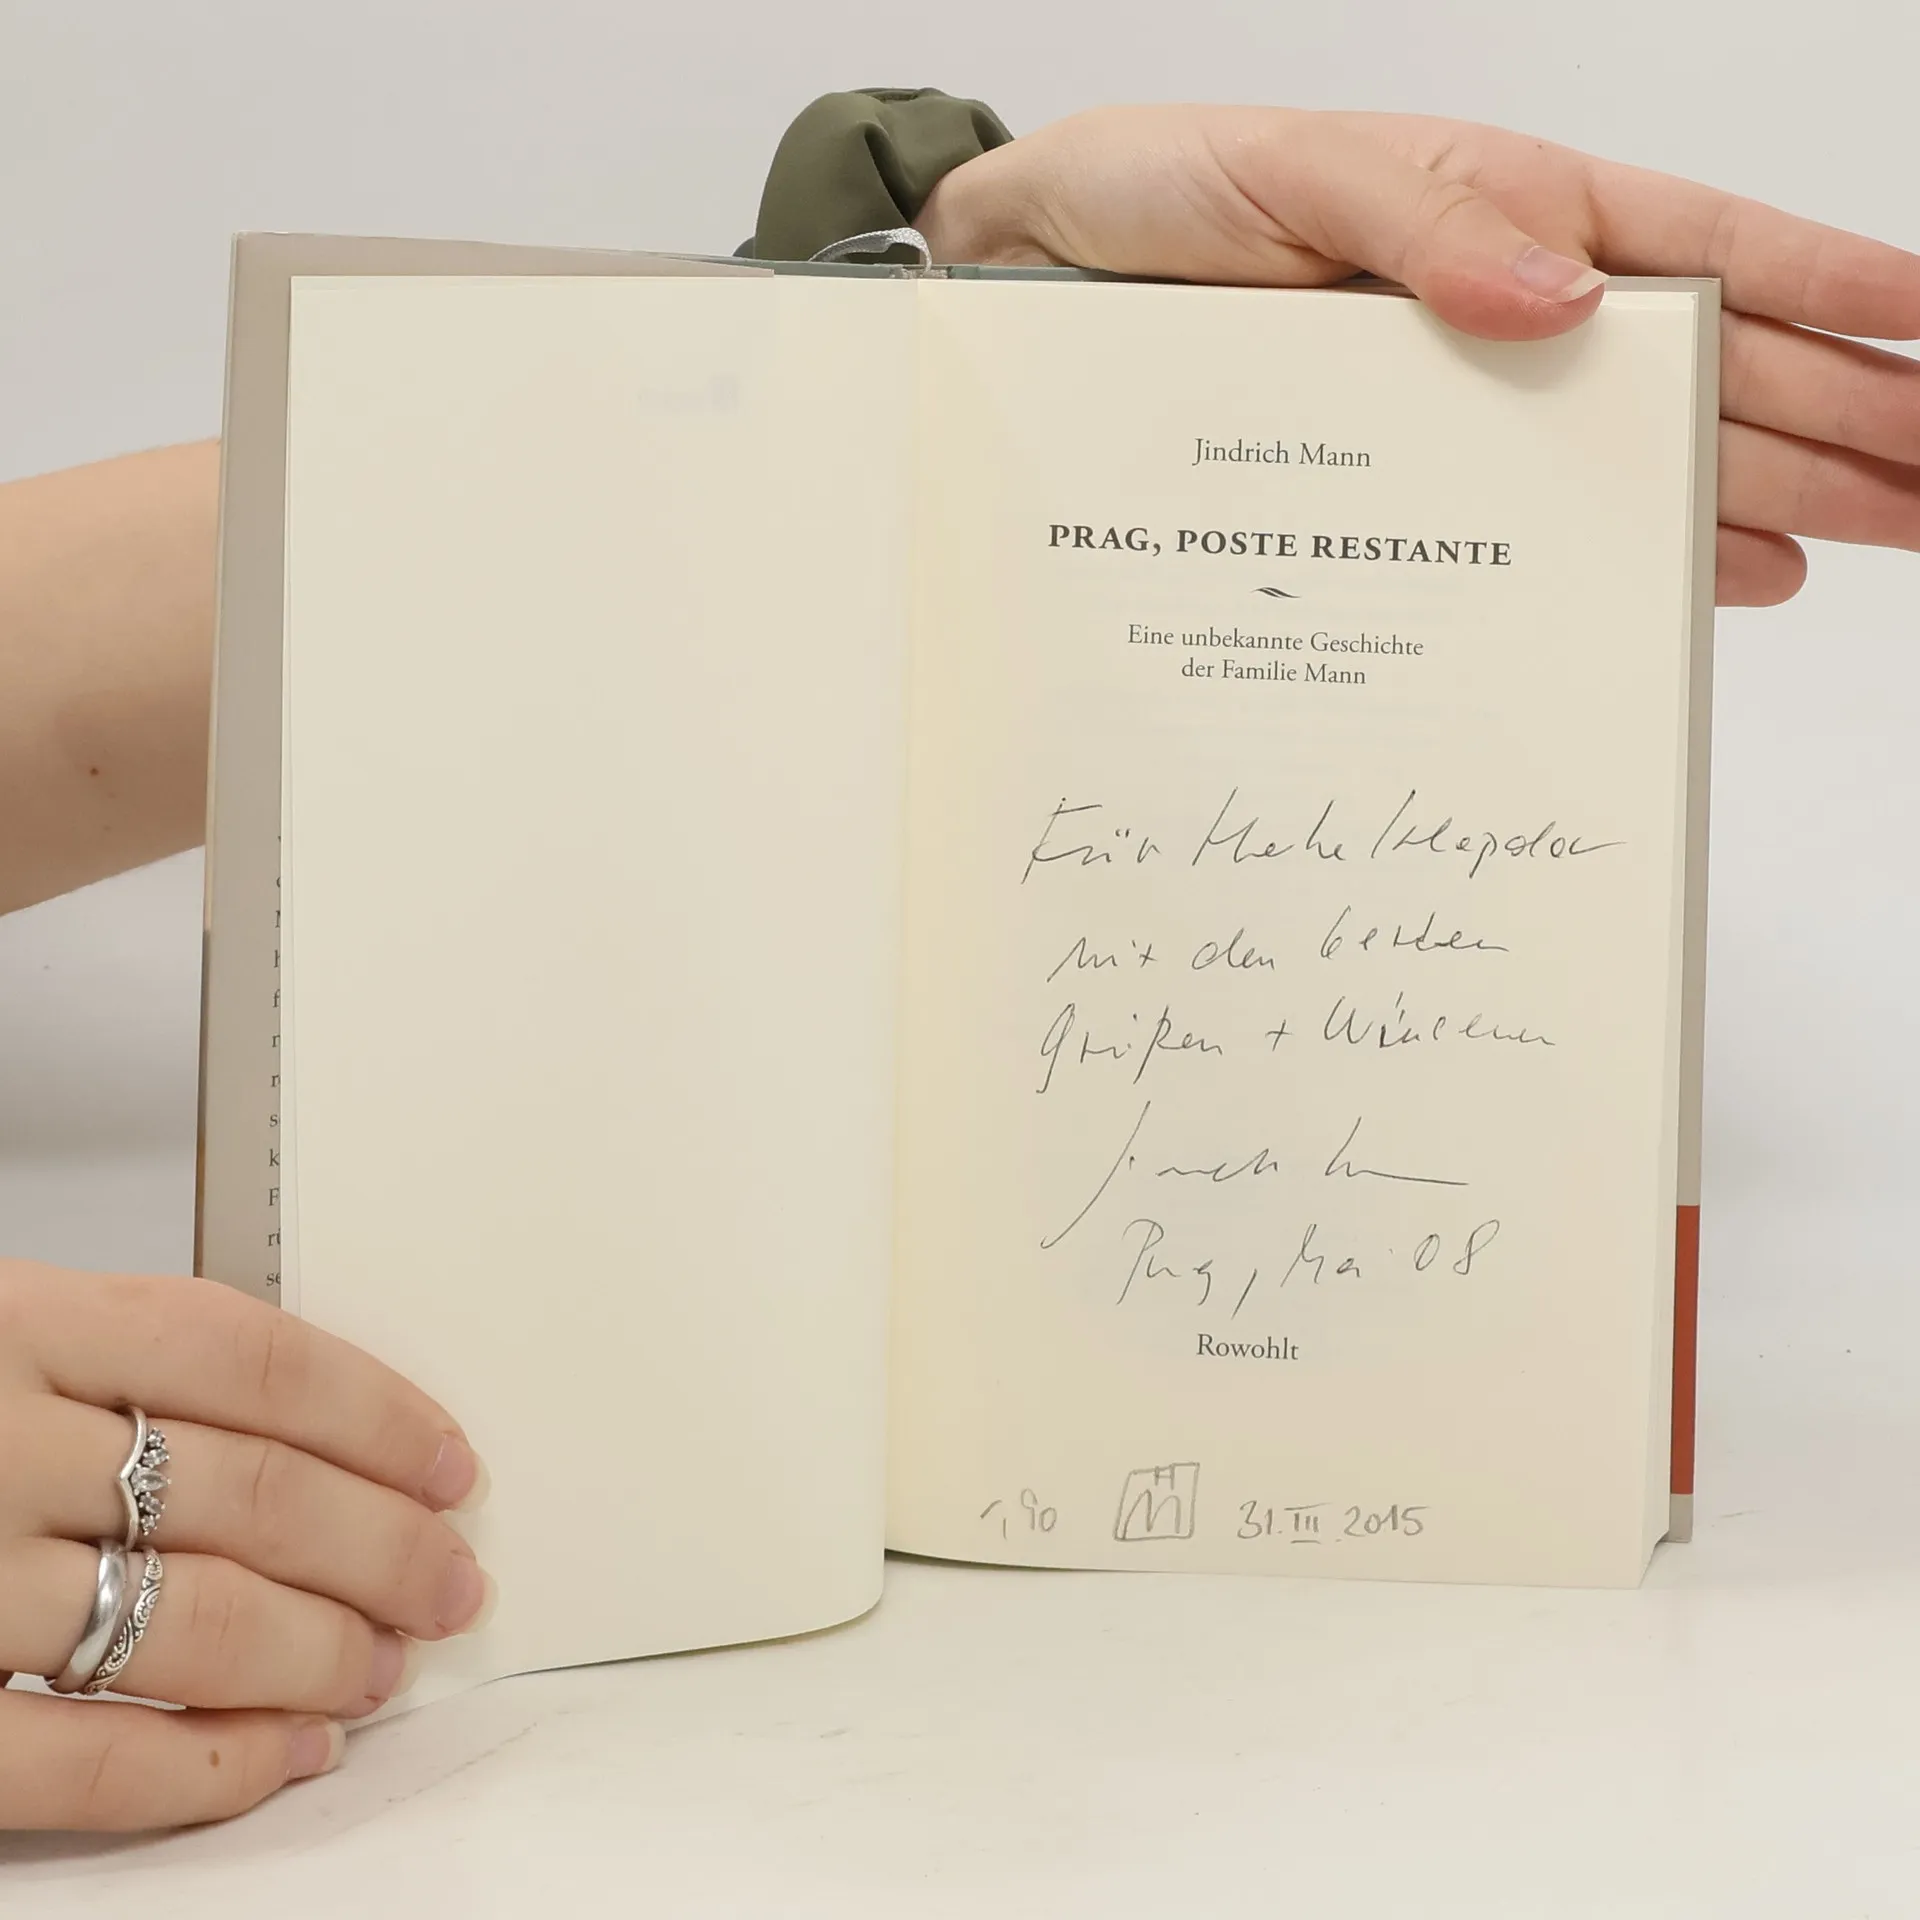 Jindrich Mann
PRAG, POSTE RESTANTE
Eine unbekannte Geschichte
der Familie Mann
Für
mit den besten
Grüßen + Wünschen
Prag, Mai 08
Rowohlt
1,90
M
31.III.2015